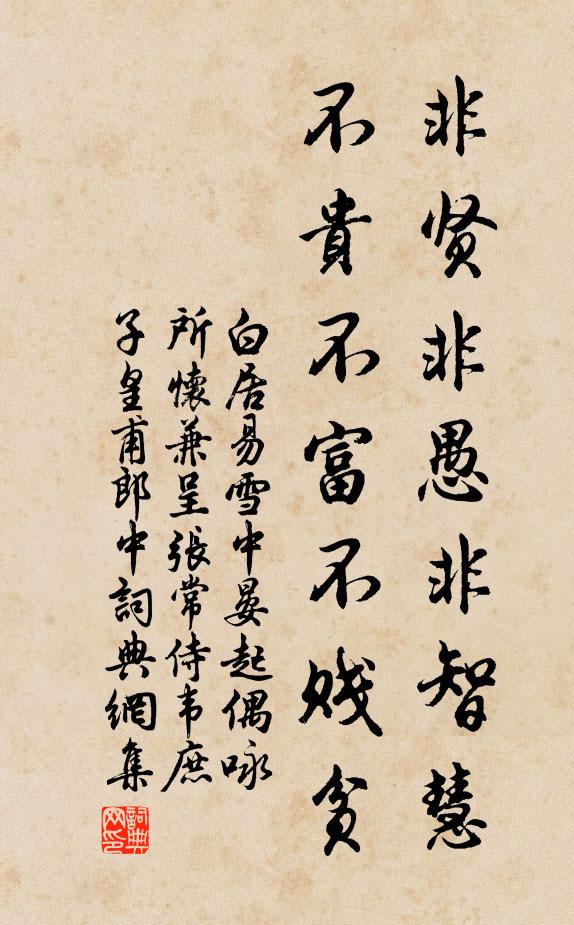 非贤非愚非智慧
不貴不富不贱貧
白居易雪中晏起偶咏
所懷兼呈張常侍韦庶
子皇甫郎中詞典網集
詞典网印